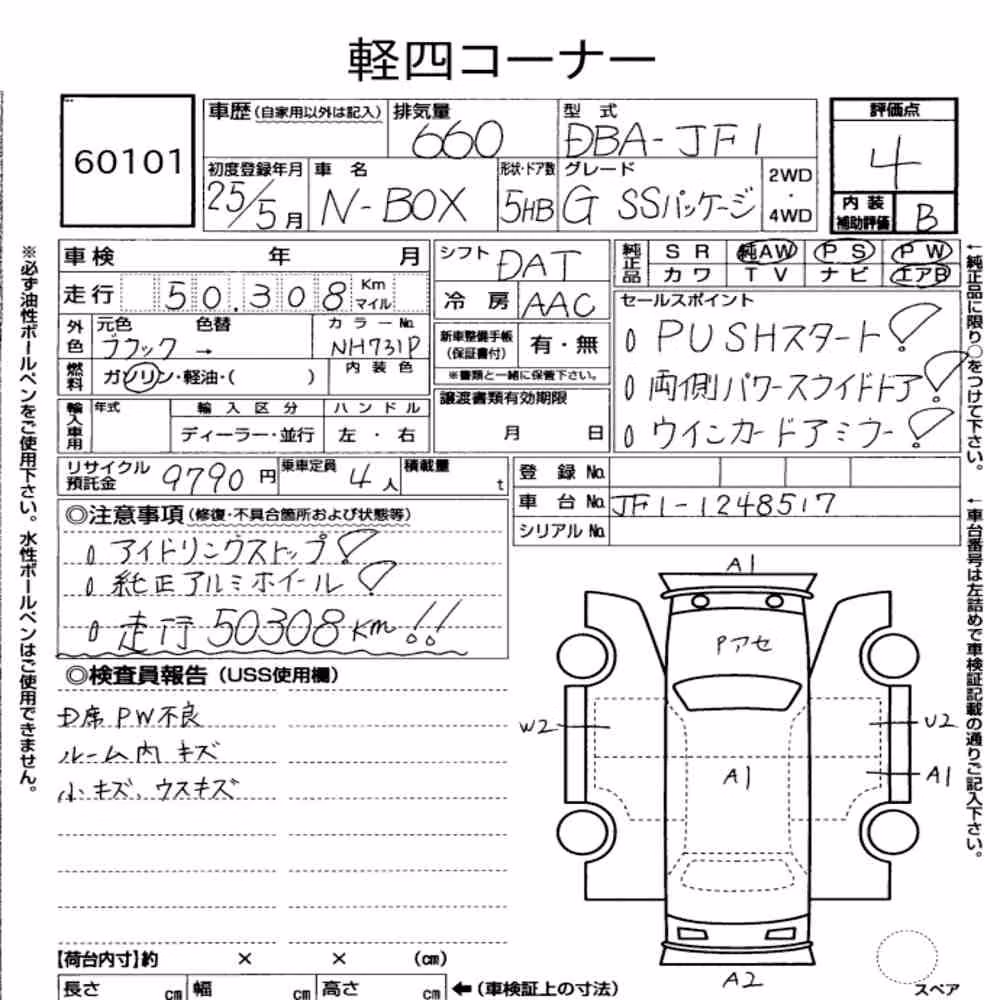 軽四コーナー
60101
車歴(自家用以外は記入) 排気量 660 型式 DBA-JF1
初度登録年月 25/5月 車名 N-BOX 形状・ドア数 5HB グレード G SSパッケージ 2WD・4WD
評価点 4
内装補助評価 B
※必ず油性ボールペンをご使用下さい。水性ボールペンはご使用できません。
車検 年 月
走行 50.308 Km マイル
外色 元色 ブラック → 色替 カラーNo. NH731P
燃料 ガソリン・軽油・( ) 内装色
輸入車用 年式 輸入区分 ディーラー・並行 ハンドル 左・右
シフト DAT
冷房 AAC
新車整備手帳(保証書付) 有・無
※書類と一緒に保管下さい。
譲渡書類有効期限
月 日
純正品 SR 純AW PS PW
カワ TV ナビ エアB
セールスポイント
PUSHスタート!
両側パワースライドドア!
ウインカードアミラー!
←純正品に限り○をつけて下さい。
リサイクル預託金 9790円 乗車定員 4人 積載量 t
登録No.
車台No. JF1-1248517
シリアルNo.
←車台番号は左詰めで車検証記載の通りご記入下さい。
◎注意事項(修復・不具合箇所および状態等)
アイドリングストップ!
純正アルミホイール!
走行50308Km!!
◎検査員報告(USS使用欄)
D席PW不良
ルーム内キズ
小キズ、ウスキズ
A1
Pアセ
W2
U2
A1
A1
A2
スペア
【荷台内寸】約 × × (cm)
長さ cm 幅 cm 高さ cm ←(車検証上の寸法)